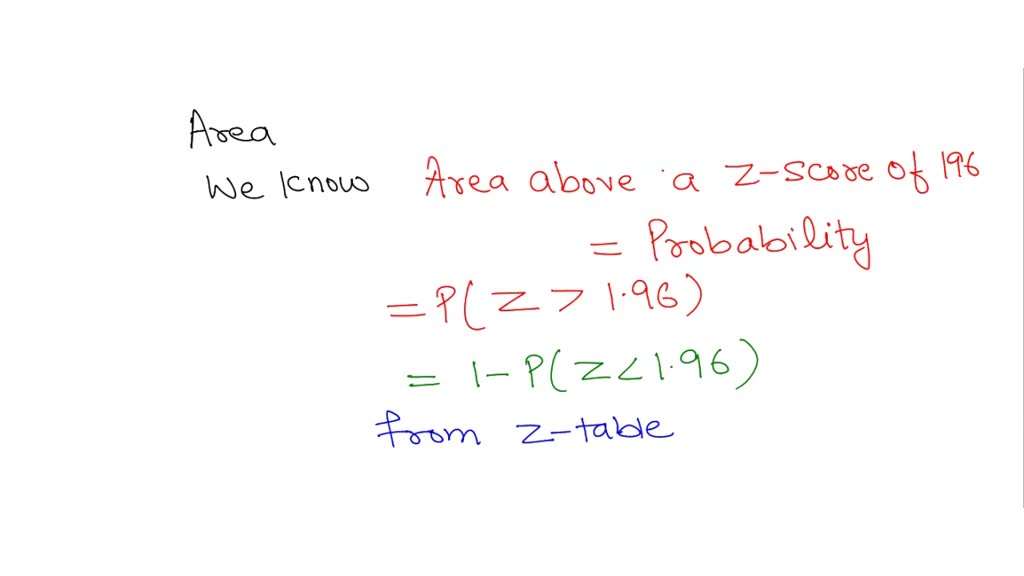 Area
We know Area above a z-score of 196
= Probability
= P(Z > 1.96)
= 1-P(Z<1.96)
from z-table